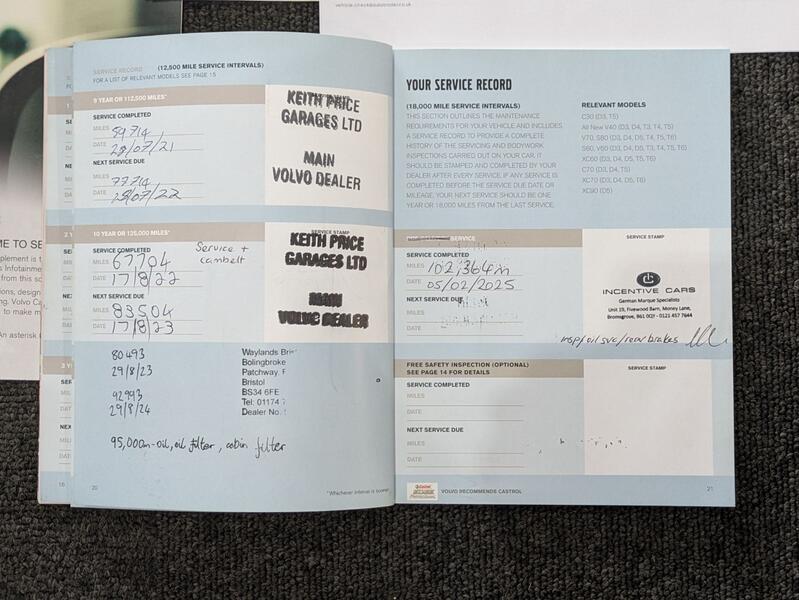 vehicle.check@autotrader.co.uk
SERVICE RECORD (12,500 MILE SERVICE INTERVALS)
FOR A LIST OF RELEVANT MODELS SEE PAGE 15
9 YEAR OR 112,500 MILES*
SERVICE COMPLETED
MILES 59714
DATE 28/07/21
NEXT SERVICE DUE
MILES 77714
DATE 28/07/22
KEITH PRICE
GARAGES LTD
MAIN
VOLVO DEALER
10 YEAR OR 125,000 MILES*
SERVICE STAMP
SERVICE COMPLETED
MILES 67704
DATE 17/8/22
Service +
cambelt
NEXT SERVICE DUE
MILES 83504
DATE 17/8/23
KEITH PRICE
GARAGES LTD
MAIN
VOLVO DEALER
80493
29/8/23
92993
29/8/24
Waylands Bri
Bolingbroke
Patchway,
Bristol
BS34 6FE
Tel: 01174
Dealer No.
95,000m-oil, oil filter, cabin filter
*Whichever interval is sooner
20
ME TO SE
An asterisk
16
YOUR SERVICE RECORD
(18,000 MILE SERVICE INTERVALS)
THIS SECTION OUTLINES THE MAINTENANCE
REQUIREMENTS FOR YOUR VEHICLE AND INCLUDES
A SERVICE RECORD TO PROVIDE A COMPLETE
HISTORY OF THE SERVICING AND BODYWORK
INSPECTIONS CARRIED OUT ON YOUR CAR. IT
SHOULD BE STAMPED AND COMPLETED BY YOUR
DEALER AFTER EVERY SERVICE. IF ANY SERVICE IS
COMPLETED BEFORE THE SERVICE DUE DATE OR
MILEAGE, YOUR NEXT SERVICE SHOULD BE ONE
YEAR OR 18,000 MILES FROM THE LAST SERVICE.
RELEVANT MODELS
C30 (D3, T5)
All New V40 (D3, D4, T3, T4, T5)
V70, S80 (D3, D4, D5, T4, T5, T6)
S60, V60 (D3, D4, D5, T3, T4, T5, T6)
XC60 (D3, D4, D5, T5, T6)
C70 (D3, D4, T5)
XC70 (D3, D4, D5, T6)
XC90 (D5)
SERVICE
SERVICE STAMP
SERVICE COMPLETED
MILES 102,364m
DATE 05/02/2025
NEXT SERVICE DUE
MILES
DATE
INCENTIVE CARS
German Marque Specialists
Unit 19, Fivewood Barn, Money Lane,
Bromsgrove, B61 0QY - 0121 457 7644
insp/oil svc/rear brakes
FREE SAFETY INSPECTION (OPTIONAL)
SEE PAGE 14 FOR DETAILS
SERVICE STAMP
SERVICE COMPLETED
MILES
DATE
NEXT SERVICE DUE
MILES
DATE
Castrol
VOLVO RECOMMENDS CASTROL
21